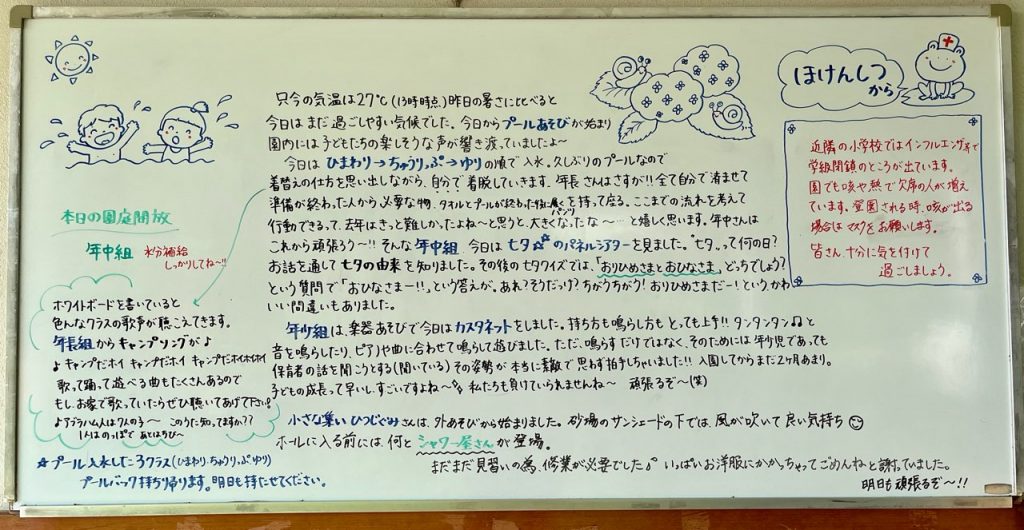 只今の気温は27℃(13時時点)昨日の暑さに比べると
今日はまだ過ごしやすい気候でした。今日からプールあそびが始まり
園内には子どもたちの楽しそうな声が響き渡っていましたよ〜
今日はひまわり→ちゅうりっぷ→ゆりの順で入水。久しぶりのプールなので
着替えの仕方を思い出しながら、自分で着脱していきます。年長さんはさすが!!全て自分で済ませて
準備が終わった人から必要な物、タオルとプールが終わった後に履くパンツを持って座る。ここまでの流れを考えて
行動できるって、去年はきっと難しかったよね〜と思うと、大きくなったな〜…と嬉しく思います。年中さんは
これから頑張ろう〜!!そんな年中組、今日は七夕のパネルシアターを見ました。"七夕"って何の日?
お話を通して七夕の由来を知りました。その後の七夕クイズでは、「おりひめさまとおひなさま、どっちでしょう?
という質問で「おひなさまー!!」という答えが。あれ?そうだっけ?ちがうちがう!おりひめさまだー!というかわ
いい間違いもありました。
年少組は、楽器あそびで今日はカスタネットをしました。持ち方も鳴らし方もとっても上手!!タンタンタン♫と
音を鳴らしたり、ピアノや曲に合わせて鳴らして遊びました。ただ、鳴らすだけではなく、そのためには年少児であっても
保育者の話を聞こうとする(聞いている)その姿勢が本当に素敵で思わず拍手しちゃいました!!入園してからまだ2ヶ月あまり。
子どもの成長って早いし、すごいですよね〜 私たちも負けていられませんね〜 頑張るぞ〜(笑)
小さな集い ひつじぐみさんは、外あそびから始まりました。砂場のサンシェードの下では、風が吹いて良い気持ち
ホールに入る前には、何とシャワー屋さんが登場。
まだまだ見習いの為、修業が必要でした♪ いっぱいお洋服にかかっちゃってごめんねと謝っていました。
明日も頑張るぞ〜!!
本日の園庭開放
年中組 水分補給
しっかりしてね〜!!
ホワイトボードを書いていると
色んなクラスの歌声が聴こえてきます。
年長組からキャンプソングが♪
♪キャンプだホイ キャンプだホイ キャンプだホイホイホイ
歌って踊って遊べる曲もたくさんあるので
もし、お家で歌っていたらぜひ聴いてあげて下さい。
♪アブラハムは7人の子〜 このうた知ってますか??
1人はのっぽで あとはちび〜
☆プール入水した3クラス(ひまわり・ちゅうりっぷ・ゆり)
プールバック持ち帰ります。明日も持たせてください。
ほけんしつ
から
近隣の小学校ではインフルエンザ等で
学級閉鎖のところが出ています。
園でも咳や熱で欠席の人が増え
ています。登園される時、咳が出る
場合はマスクをお願いします。
皆さん、十分に気を付けて
過ごしましょう。